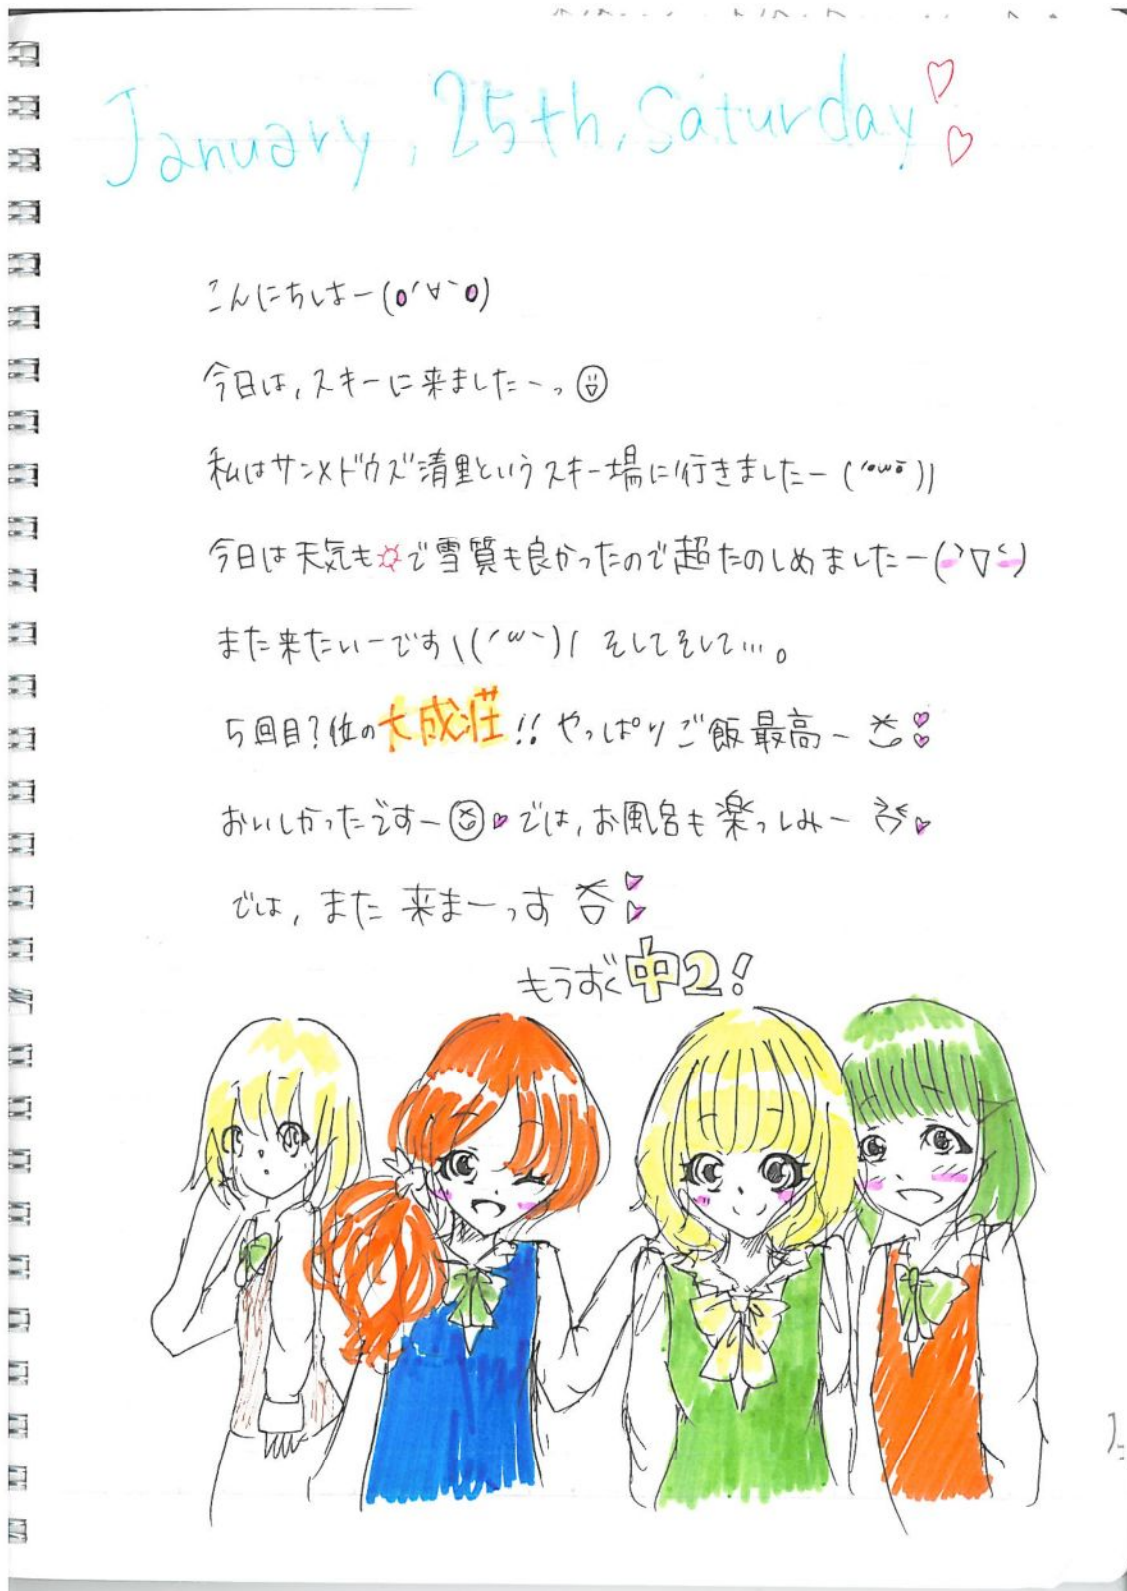 January, 25th, Saturday♡♡
こんにちはー(o´∀`o)
今日は,スキーに来ましたーっ
私はサンメドウズ清里というスキー場に行きましたー(´・ω・`))
今日は天気も☼で雪質も良かったので超たのしめましたー(>▽<)
また来たいーです\(´ω`)/ そしてそして…。
5回目?位の大成荘!! やっぱりご飯最高ー♡♡
おいしかったですー♡では,お風呂も楽っしみー♡
では,また来まーっす♡♡
もうすぐ中2!